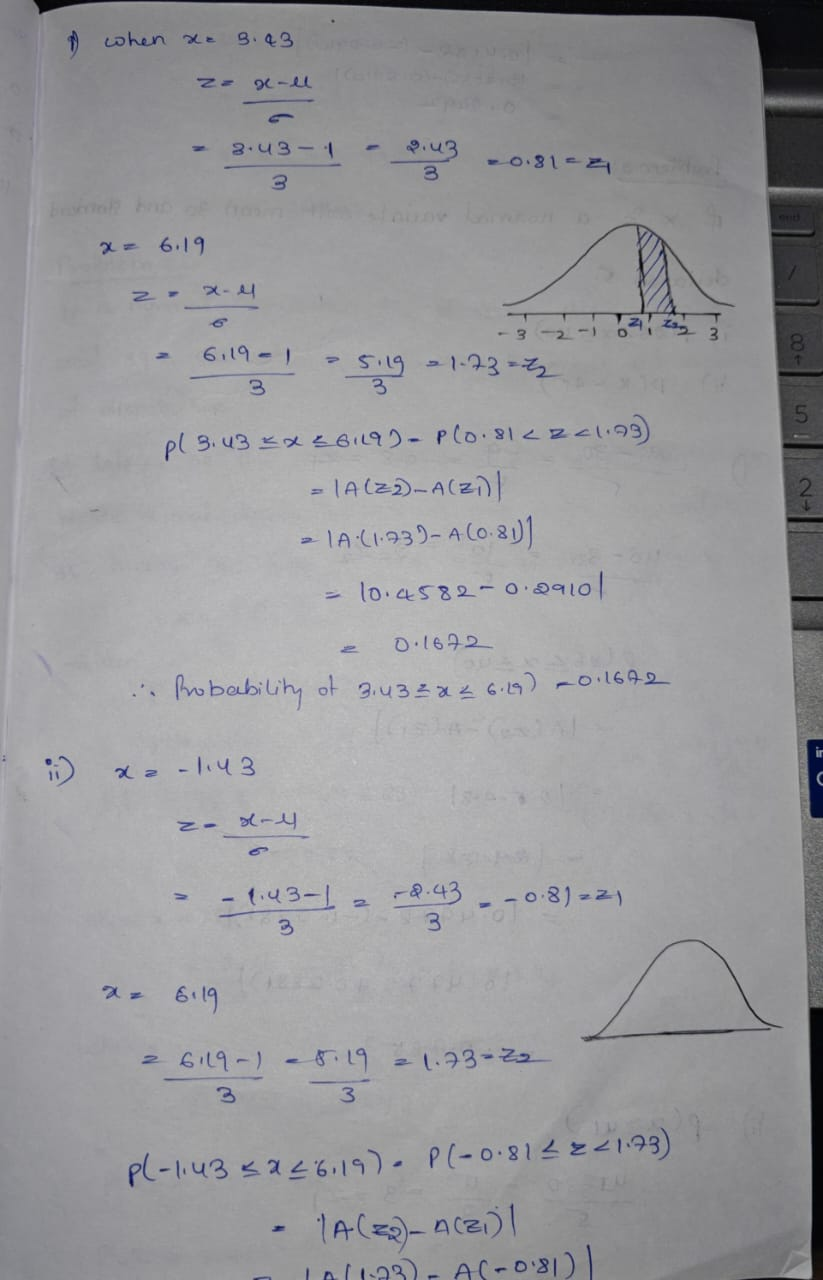 i) when x = 3.43
z = x-μ / σ
= 3.43-1 / 3 = 2.43 / 3 = 0.81 = z1
x = 6.19
z = x-μ / σ
-3 -2 -1 0 z1 1 z2 2 3
= 6.19-1 / 3 = 5.19 / 3 = 1.73 = z2
P( 3.43 ≤ x ≤ 6.19) = P(0.81 < z < 1.73)
= |A(z2) - A(z1)|
= |A(1.73) - A(0.81)|
= |0.4582 - 0.2910|
= 0.1672
∴ Probability of 3.43 ≤ x ≤ 6.19) = 0.1672
ii) x = -1.43
z = x-μ / σ
= -1.43-1 / 3 = -2.43 / 3 = -0.81 = z1
x = 6.19
= 6.19-1 / 3 = 5.19 / 3 = 1.73 = z2
P(-1.43 ≤ x ≤ 6.19) = P(-0.81 ≤ z < 1.73)
= |A(z2) - A(z1)|
= |A(1.73) - A(-0.81)|
end
/
8
5
2